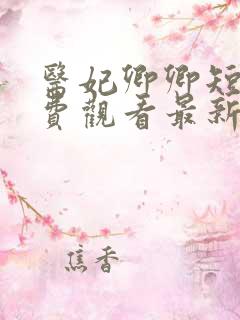 醫妃卿卿短
費觀看最新
焦香